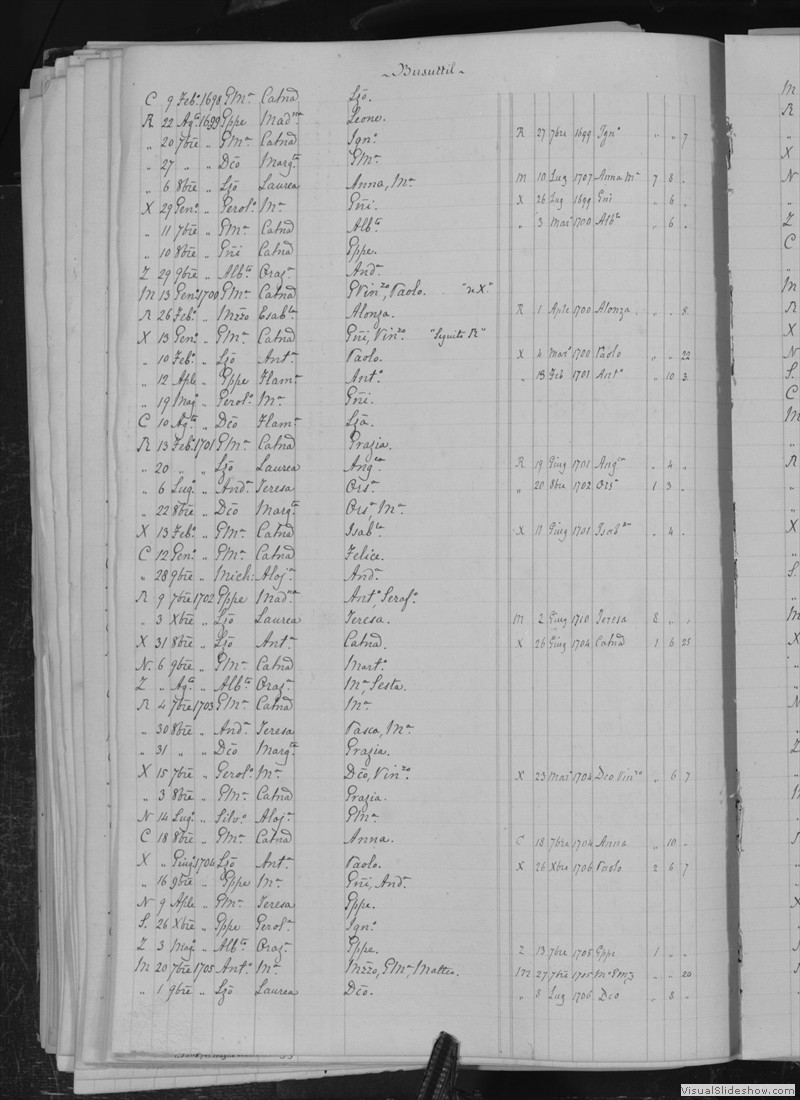 Busuttil
C 9 Febo 1698 GMa Catnd Lzo.
R 22 Agto 1699 Gppe Madna Leone.
„ 20 7bre „ GMa Catnd Igno. R 27 7bre 1699 Igno „ „ 7
„ 27 „ „ Dco Margta GMa.
„ 6 8bre „ Lzo Laurea Anna, Ma. M 10 Lug 1707 Anna Ma 7 8 „
X 29 Geno „ Gerolo Ma Gni. X 26 Lug 1699 Gni „ 6 „
„ 11 7bre „ GMa Catnd Albto. „ 3 Mar 1700 Albto „ 6 „
„ 10 8bre „ Gni Catnd Gppe.
Z 29 9bre „ Albto Oraza Anda.
M 13 Geno 1700 GMa Catnd GVinzo, Paolo. "v X."
R 26 Febo „ Mzzo Esabta Alonza. R 1 Aple 1700 Alonza. „ „ 8
X 13 Geno „ GMa Catnd Gni, Vinzo. "Seguito R"
„ 10 Febo „ Lzo Anta Paolo. X 4 Mar 1700 Paolo „ „ 22
„ 12 Aple „ Gppe Flama Anto. „ 13 Feb 1701 Anto „ 10 3
„ 19 Mago „ Gerolo Ma Gni.
C 10 Agto „ Dco Flama Lza.
R 13 Febo 1701 GMa Catnd Grazia.
„ 20 „ „ Lzo Laurea Angca. R 19 Giug 1701 Angca „ 4 „
„ 6 Lugo „ Anda Teresa Orsa. „ 20 8bre 1702 Orsa 1 3 „
„ 22 8bre „ Dco Margta Orsa Ma.
X 13 Febo „ GMa Catnd Isabta. X 11 Giug 1701 Isabta „ 4 „
C 12 Geno „ GMa Catnd Felice.
„ 28 9bre „ Mich: Aloja Anda.
R 9 7bre 1702 Gppe Madna Anto, Serafo.
„ 3 Xbre „ Lzo Laurea Teresa. M 2 Giug 1710 Teresa 8 „ „
X 31 8bre „ Lzo Anta Catnd. X 26 Giug 1704 Catnd 1 6 25
N. 6 9bre „ GMa Catnd Marto.
Z „ Agto „ Albto Oraza Ma, Sesta.
R 4 7bre 1703 GMa Catnd Ma.
„ 30 8bre „ Anda Teresa Pasca, Ma.
„ 31 „ „ Dco Margta Grazia.
X 15 7bre „ Gerolo Ma Dco, Vinzo. X 23 Mar 1704 Dco Vinzo „ 6 7
„ 3 8bre „ GMa Catnd Grazia.
N 14 Lugo „ Silvo Aloja GMa.
C 18 8bre „ GMa Catnd Anna. C 18 7bre 1704 Anna „ 10 „
X „ Giugo 1704 Lzo Anta Paolo. X 26 Xbre 1706 Paolo 2 6 7
„ 16 9bre „ Gppe Ma Gni, Anda.
N 9 Aple „ GMa Teresa Gppe.
S. 26 Xbre „ Gppe Gerola Igno.
Z 3 Mago „ Albto Oraza Gppe. Z 13 7bre 1705 Gppe 1 „ „
M 20 7bre 1705 Anto Ma Mzzo, GMa, Matteo. M 27 7bre 1705 „ „ 20
„ 1 9bre „ Lzo Laurea Dco. „ 8 Lug 1706 Dco „ 8 „
VisualSlideshow.com